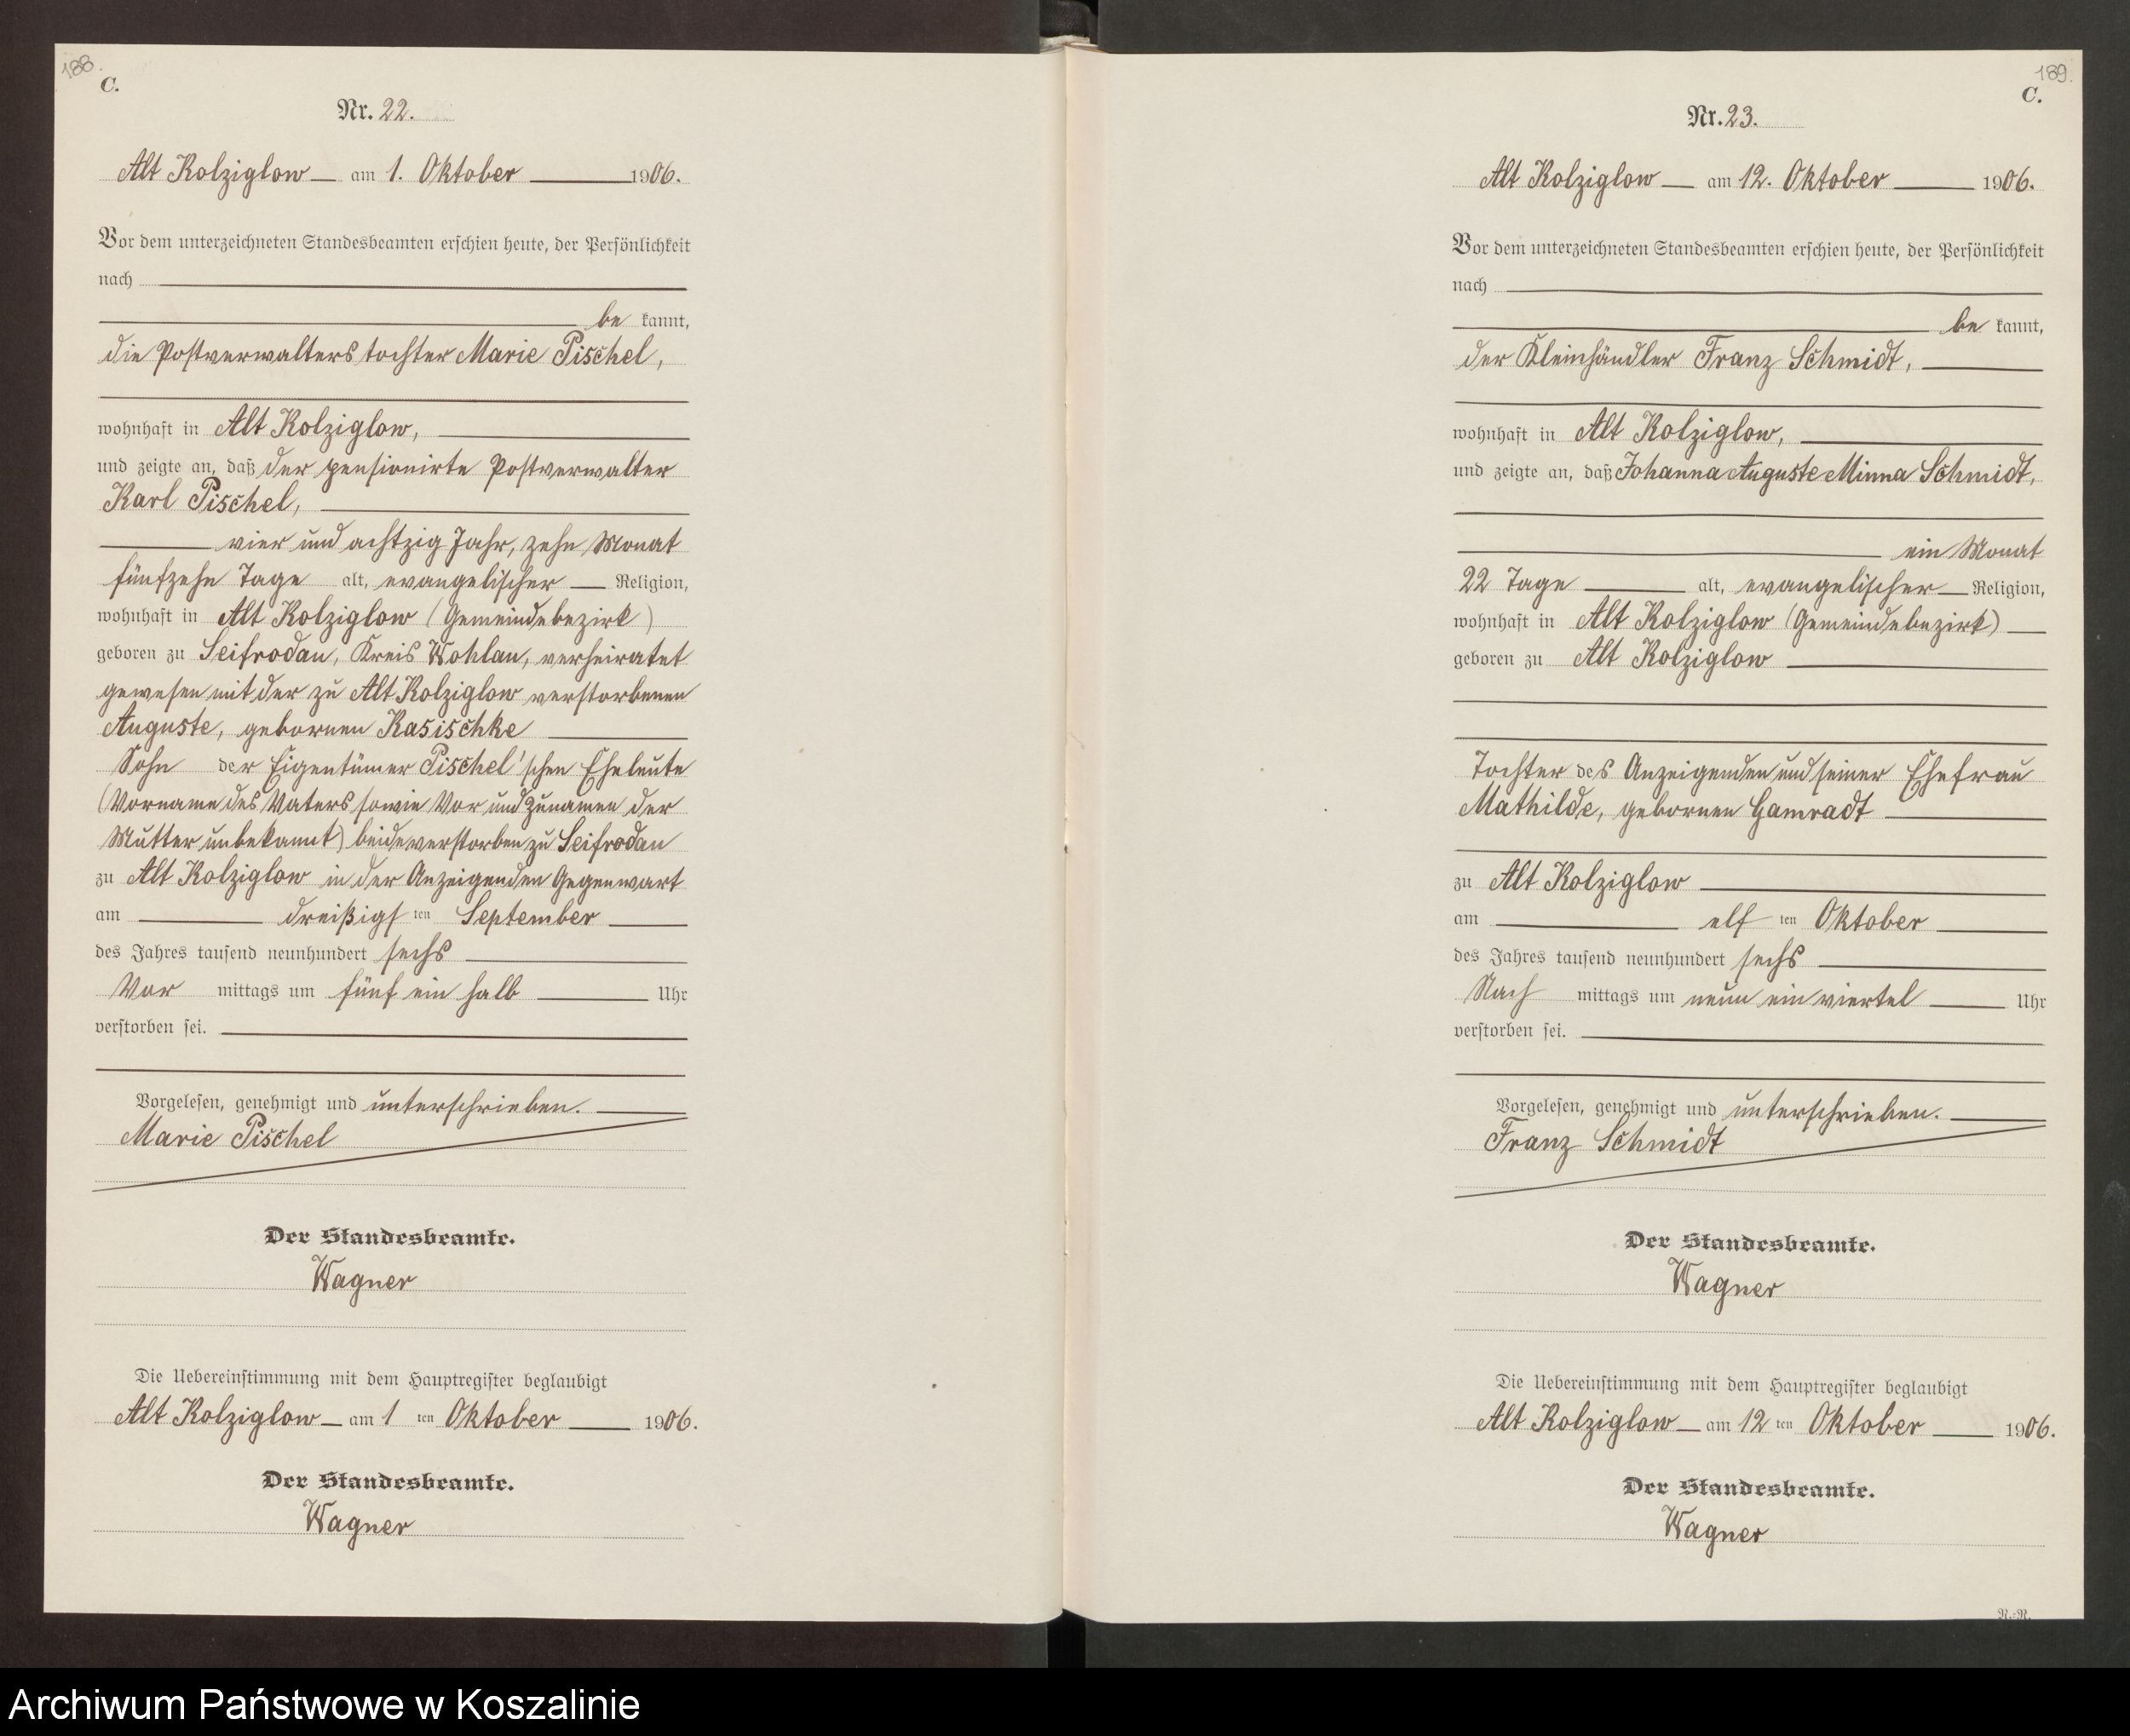 188.
C.
Nr. 22.
Alt Kolziglow am 1. Oktober 1906.
Vor dem unterzeichneten Standesbeamten erschien heute, der Persönlichkeit
nach
be kannt,
die Postverwalterstochter Marie Pischel,
wohnhaft in Alt Kolziglow,
und zeigte an, daß der pensionirte Postverwalter
Karl Pischel,
vier und achtzig Jahr, zehn Monat
fünfzehn Tage alt, evangelischer Religion,
wohnhaft in Alt Kolziglow (Gemeindebezirk)
geboren zu Seifrodau, Kreis Wohlau, verheiratet
gewesen mit der zu Alt Kolziglow verstorbenen
Auguste, gebornen Kasischke
Sohn der Eigentümer Pischel'schen Eheleute
(Vorname des Vaters sowie Vor und Zunamen der
Mutter unbekannt) beide verstorben zu Seifrodau
zu Alt Kolziglow in der Anzeigenden Gegenwart
am dreißigs ten September
des Jahres tausend neunhundert sechs
Vor mittags um fünf ein halb Uhr
verstorben sei.
Vorgelesen, genehmigt und unterschrieben.
Marie Pischel
Der Standesbeamte.
Wagner
Die Uebereinstimmung mit dem Hauptregister beglaubigt
Alt Kolziglow am 1 ten Oktober 1906.
Der Standesbeamte.
Wagner
189.
C.
Nr. 23.
Alt Kolziglow am 12. Oktober 1906.
Vor dem unterzeichneten Standesbeamten erschien heute, der Persönlichkeit
nach
be kannt,
der Kleinhändler Franz Schmidt,
wohnhaft in Alt Kolziglow,
und zeigte an, daß Johanna Auguste Minna Schmidt,
ein Monat
22 Tage alt, evangelischer Religion,
wohnhaft in Alt Kolziglow (Gemeindebezirk)
geboren zu Alt Kolziglow
Tochter des Anzeigenden und seiner Ehefrau
Mathilde, gebornen Gamradt
zu Alt Kolziglow
am elf ten Oktober
des Jahres tausend neunhundert sechs
Nach mittags um neun ein viertel Uhr
verstorben sei.
Vorgelesen, genehmigt und unterschrieben.
Franz Schmidt
Der Standesbeamte.
Wagner
Die Uebereinstimmung mit dem Hauptregister beglaubigt
Alt Kolziglow am 12 ten Oktober 1906.
Der Standesbeamte.
Wagner
Archiwum Państwowe w Koszalinie